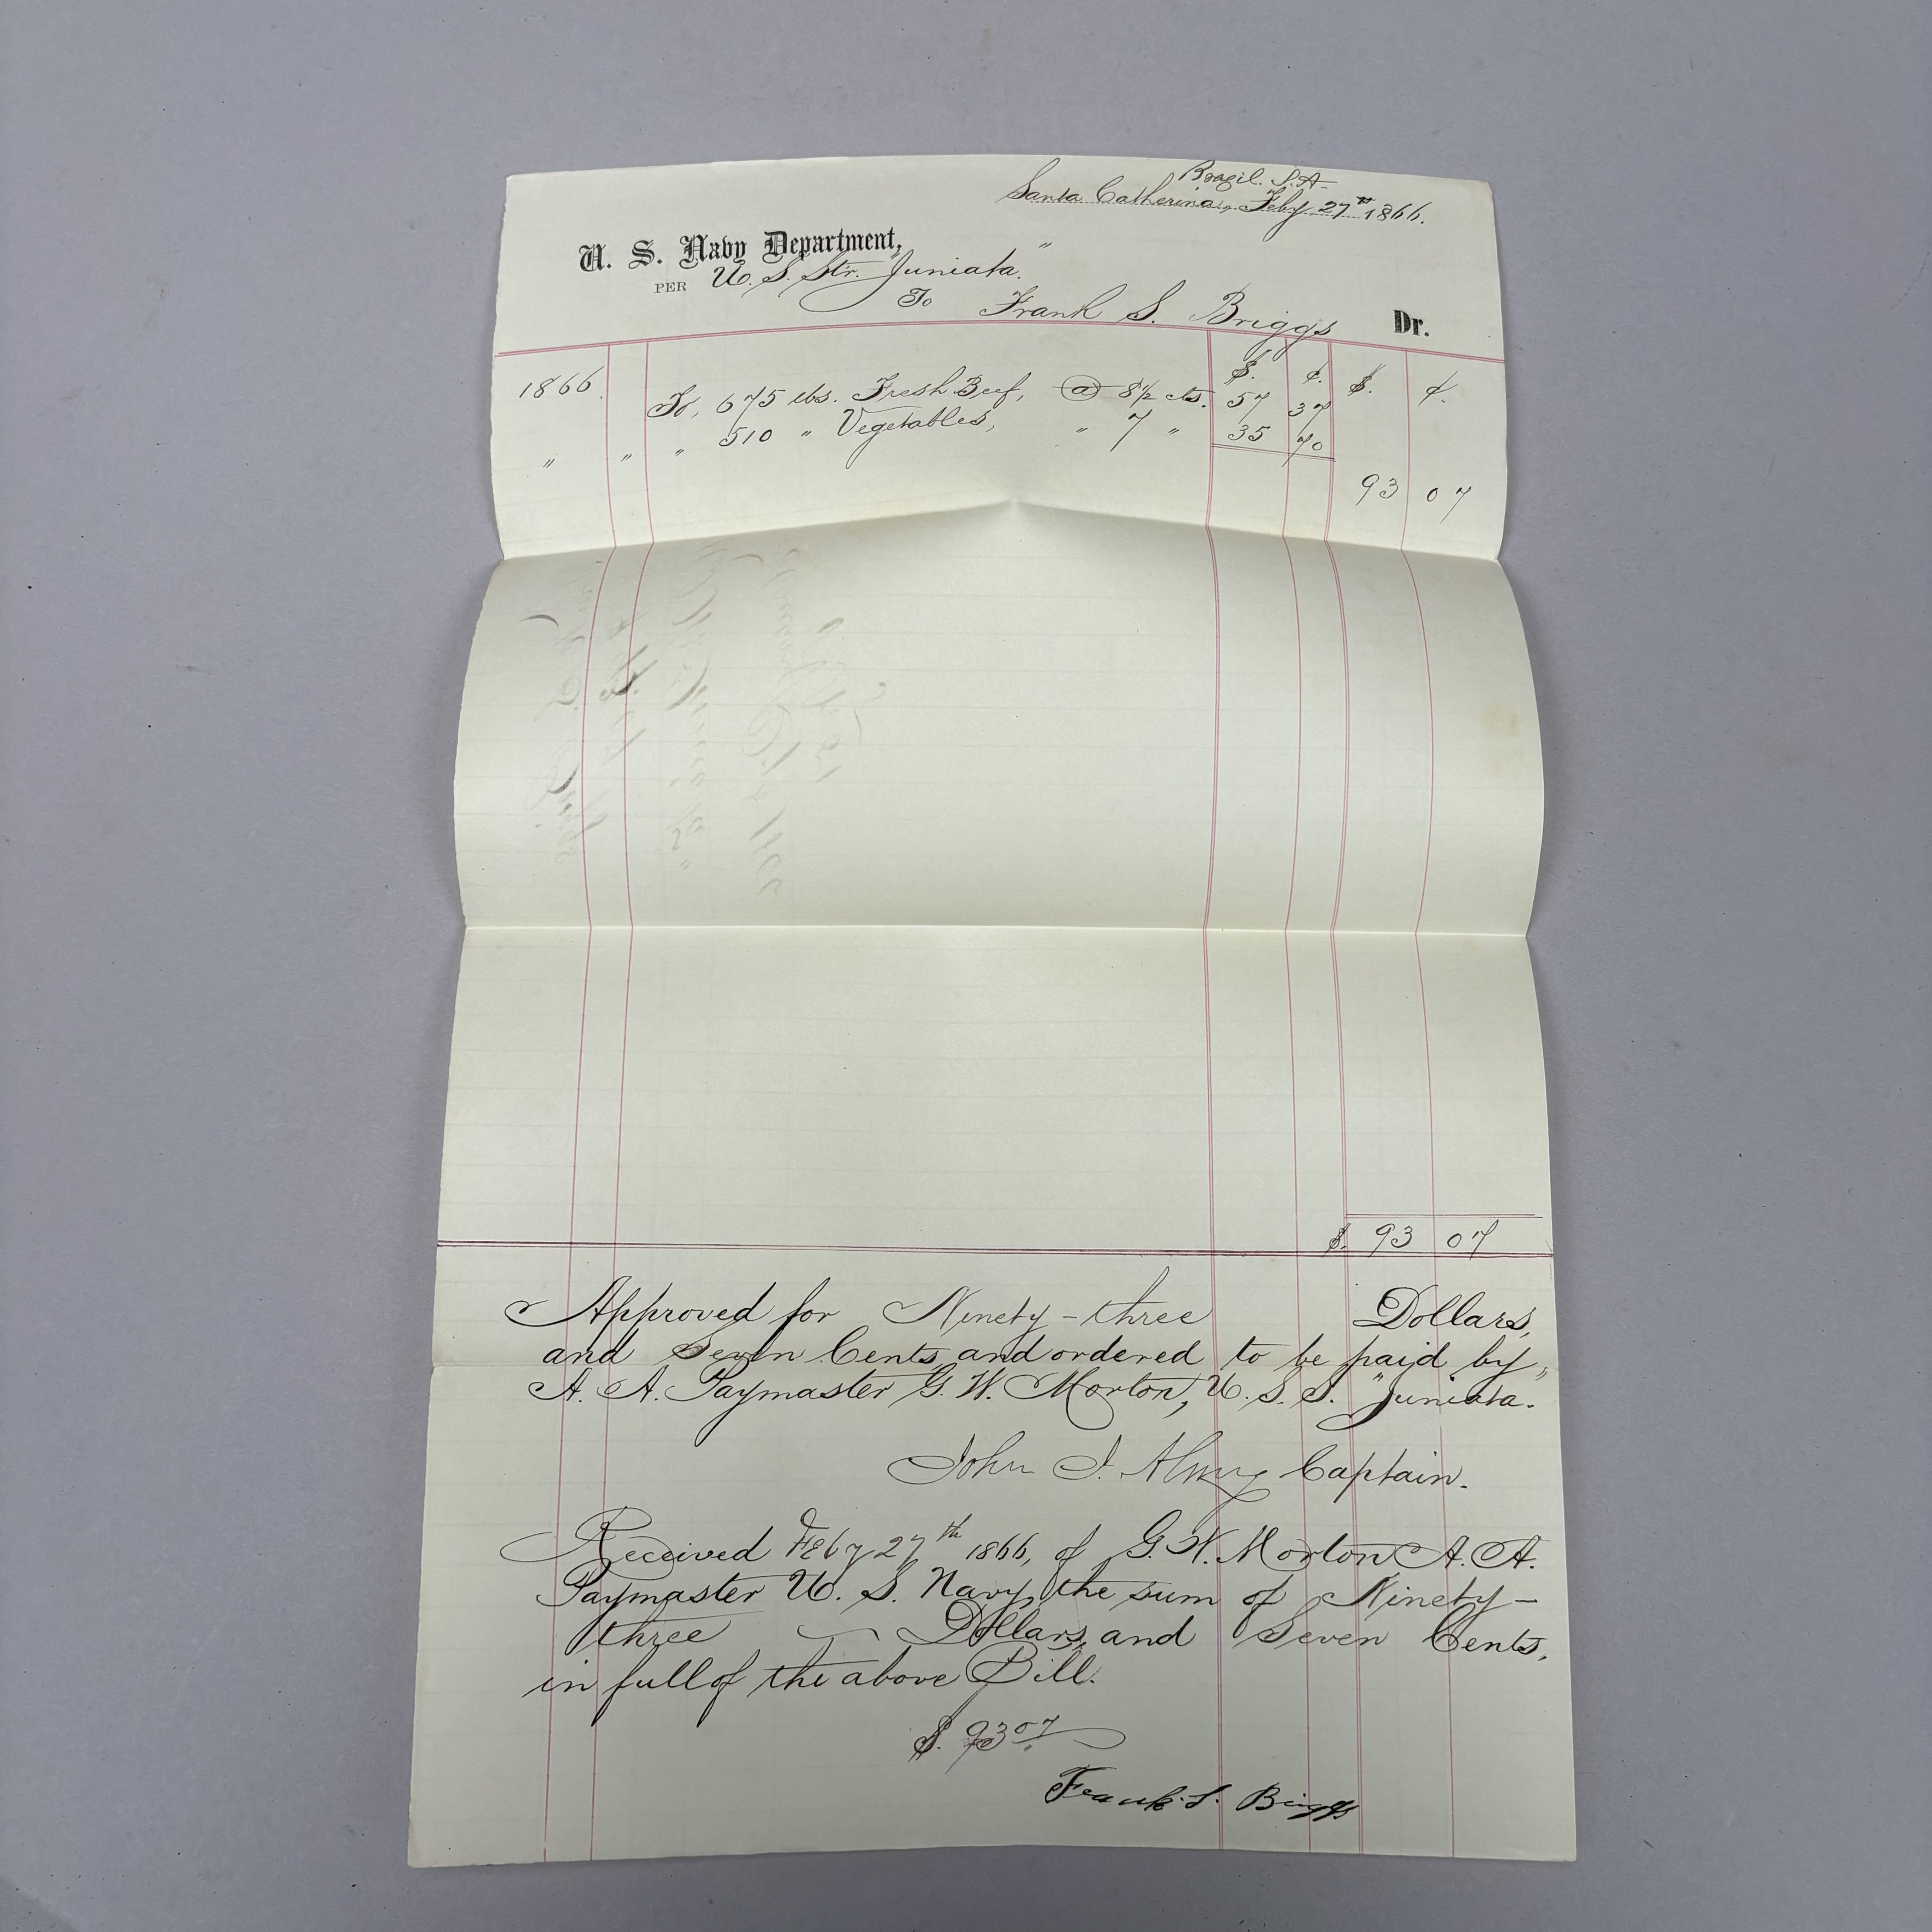 Brazil. S.A.
Santa Catherina, Feby 27th 1866.
U. S. Navy Department,
PER U. S. Str. "Juniata."
To Frank S. Briggs Dr.
$. ¢. $. ¢.
1866. To, 675 lbs. Fresh Beef, @ 8½ cts. 57 37
" " " 510 " Vegetables, " 7 " 35 70
93 07
$. 93 07
Approved for Ninety-three Dollars,
and Seven Cents, and ordered to be paid by
A. A. Paymaster G. W. Morton, U. S. S. "Juniata."
John J. Almy Captain.
Received Feby 27th 1866, of G. W. Morton A. A.
Paymaster U. S. Navy, the sum of Ninety-
three Dollars, and Seven Cents,
in full of the above Bill.
$. 93 07
Frank. S. Briggs